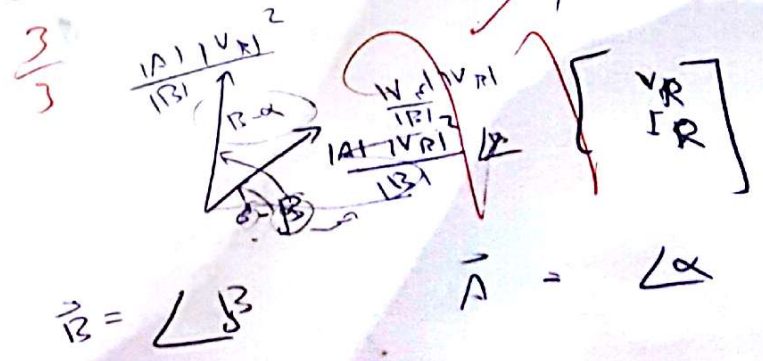 3/3
|A| |V_R|²/|B|
β-α
|V_S| |V_R|/|B|
|A| |V_R|²/|B|
[V_R
I_R]
δ-β
B⃗ = ∠β
A⃗ = ∠α